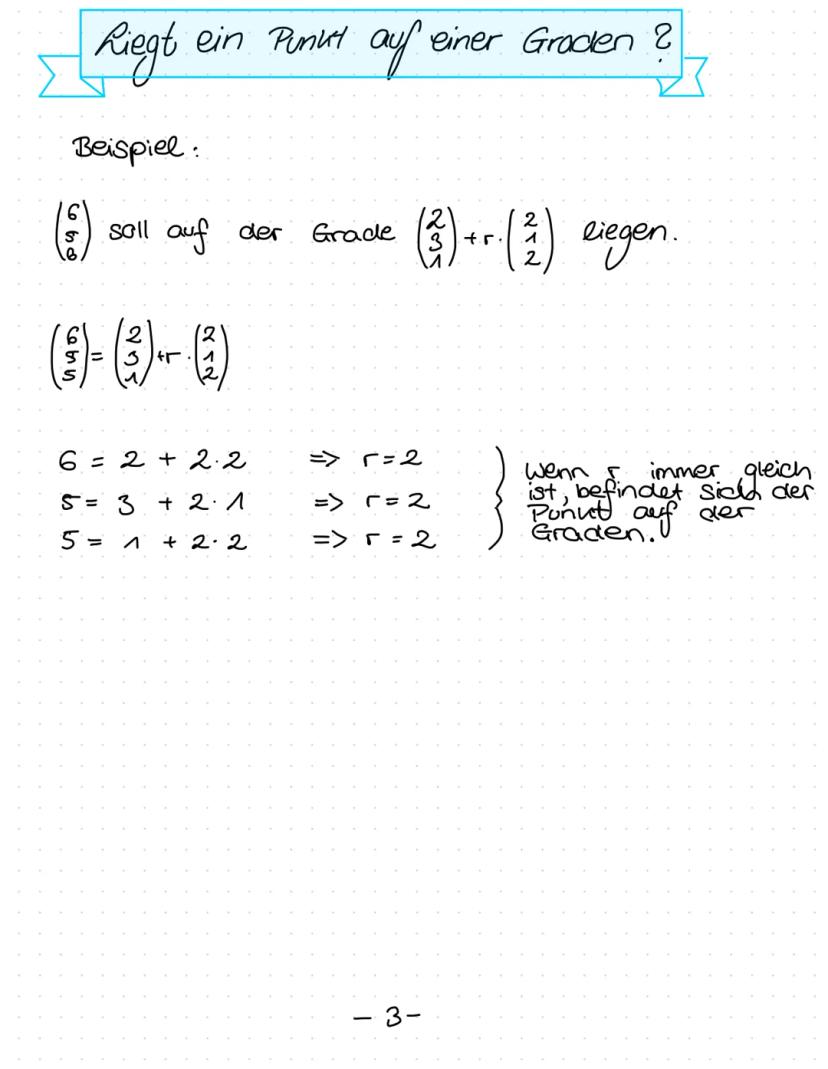 Liegt ein Punkt auf einer Graden?
Beispiel:
(6 5 8) soll auf der Grade (2 3 1) + r · (2 1 2) liegen.
(6 5 5) = (2 3 1) + r · (2 1 2)
6 = 2 + 2·2 => r = 2
5 = 3 + 2·1 => r = 2
5 = 1 + 2·2 => r = 2
Wenn r immer gleich
ist, befindet sich der
Punkt auf der
Graden.
- 3 -